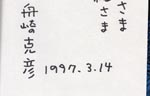 さま
さま
舟崎克彦
1997.3.14